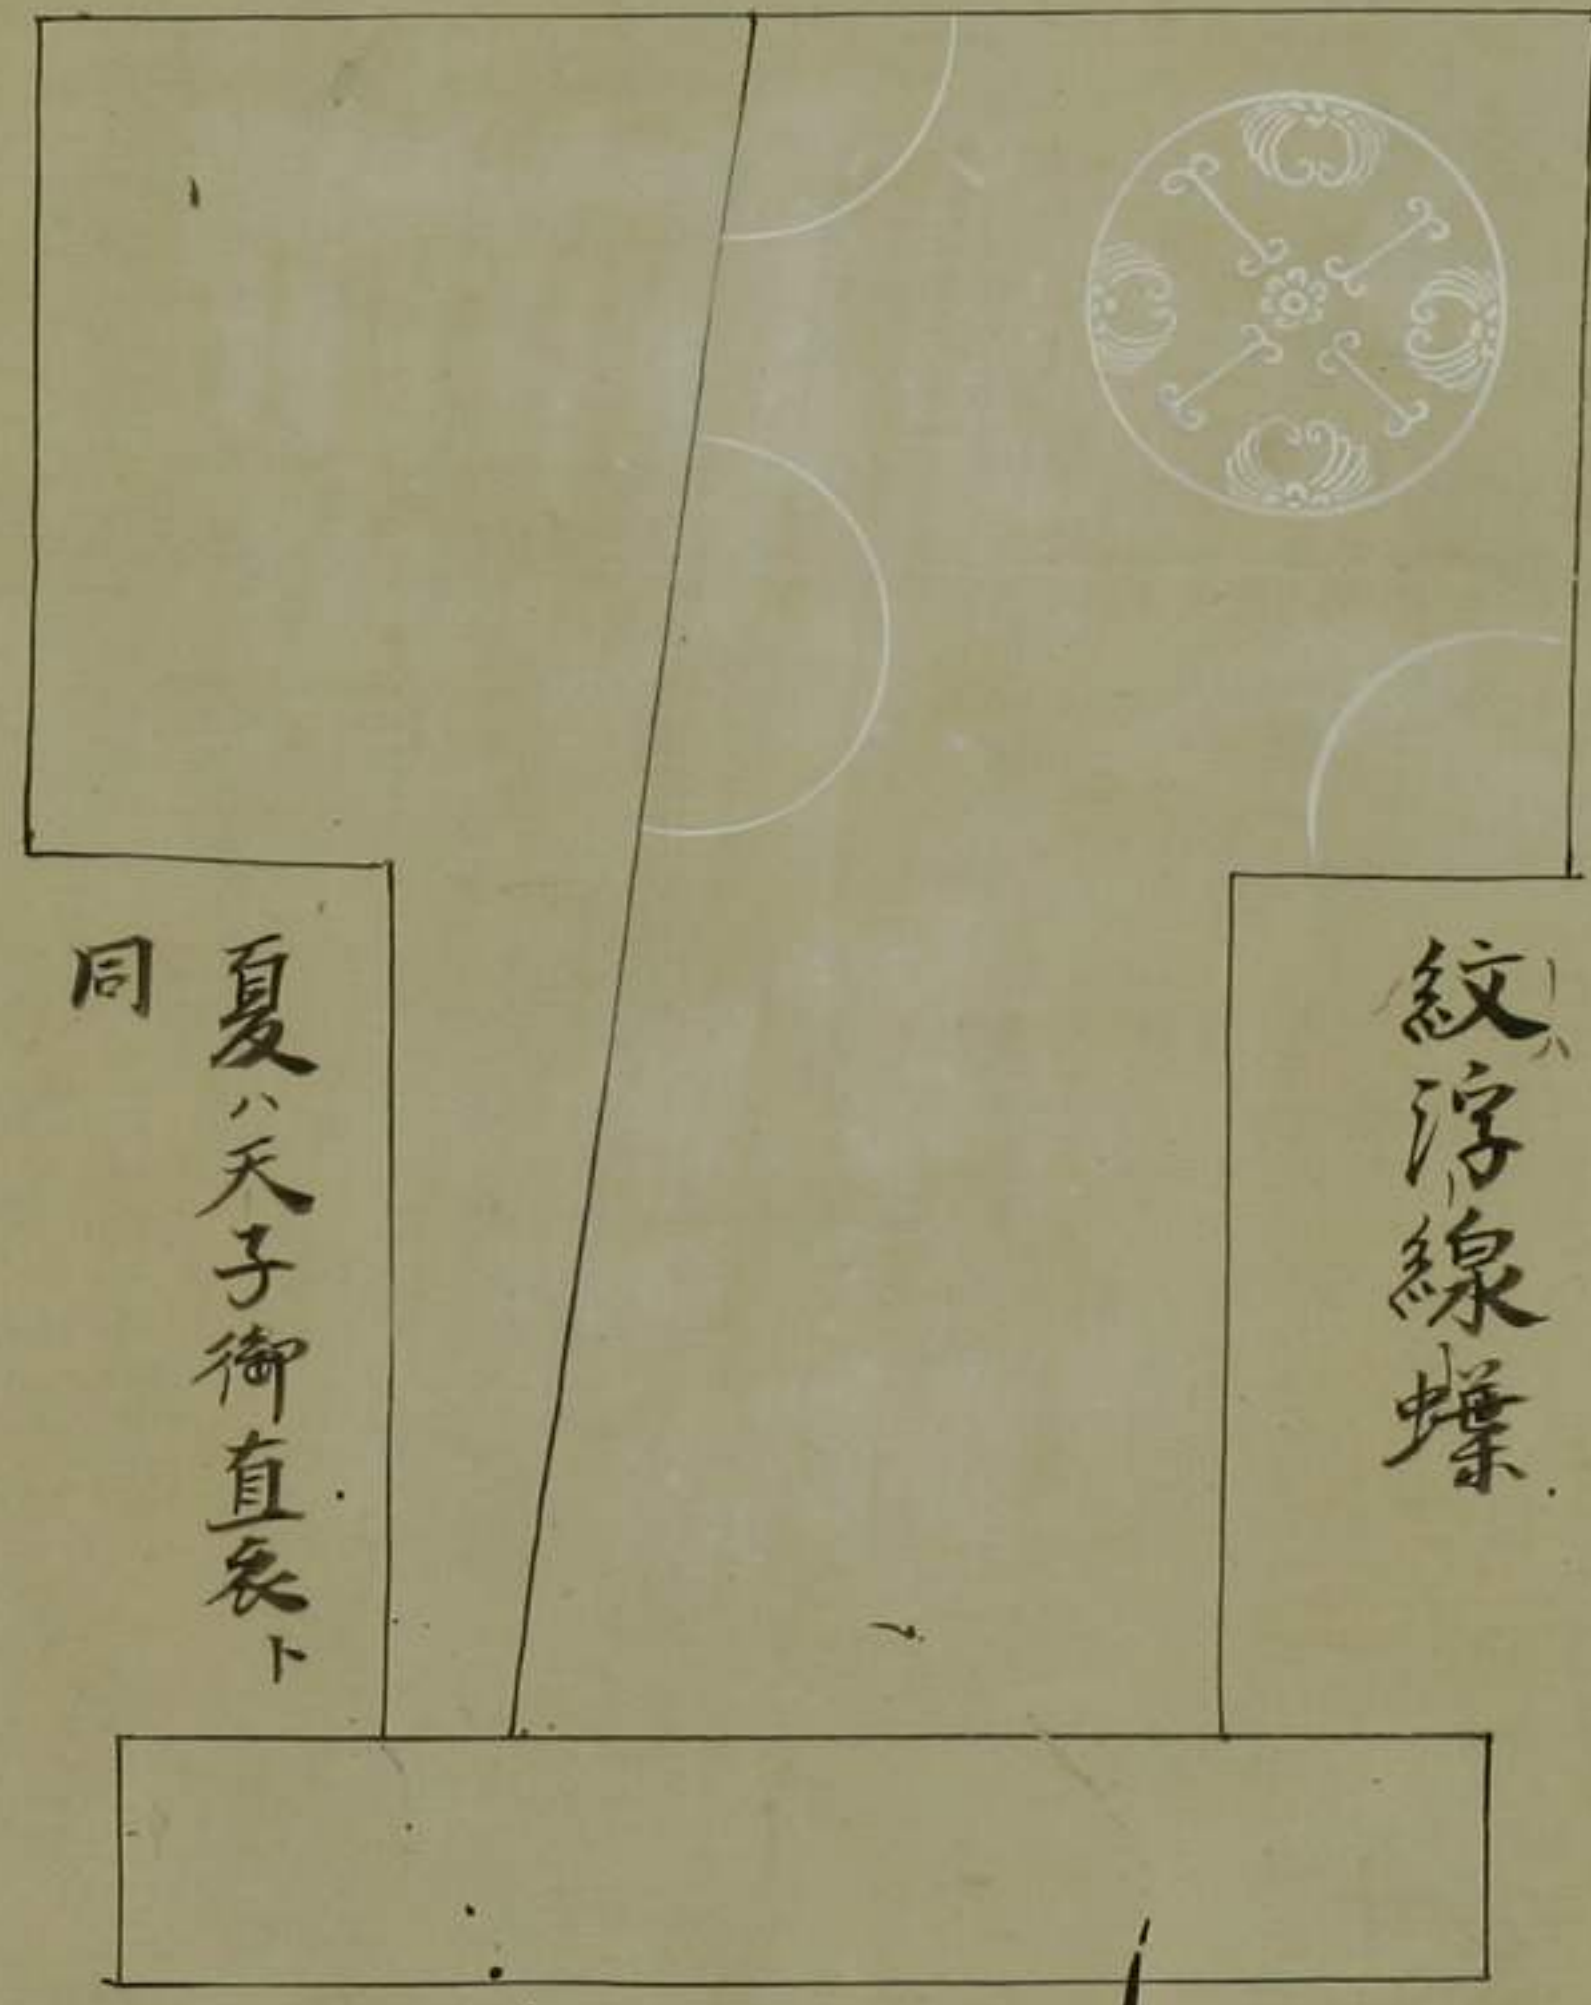 紋ハ浮線蝶
夏ハ天子御直衣ト
同